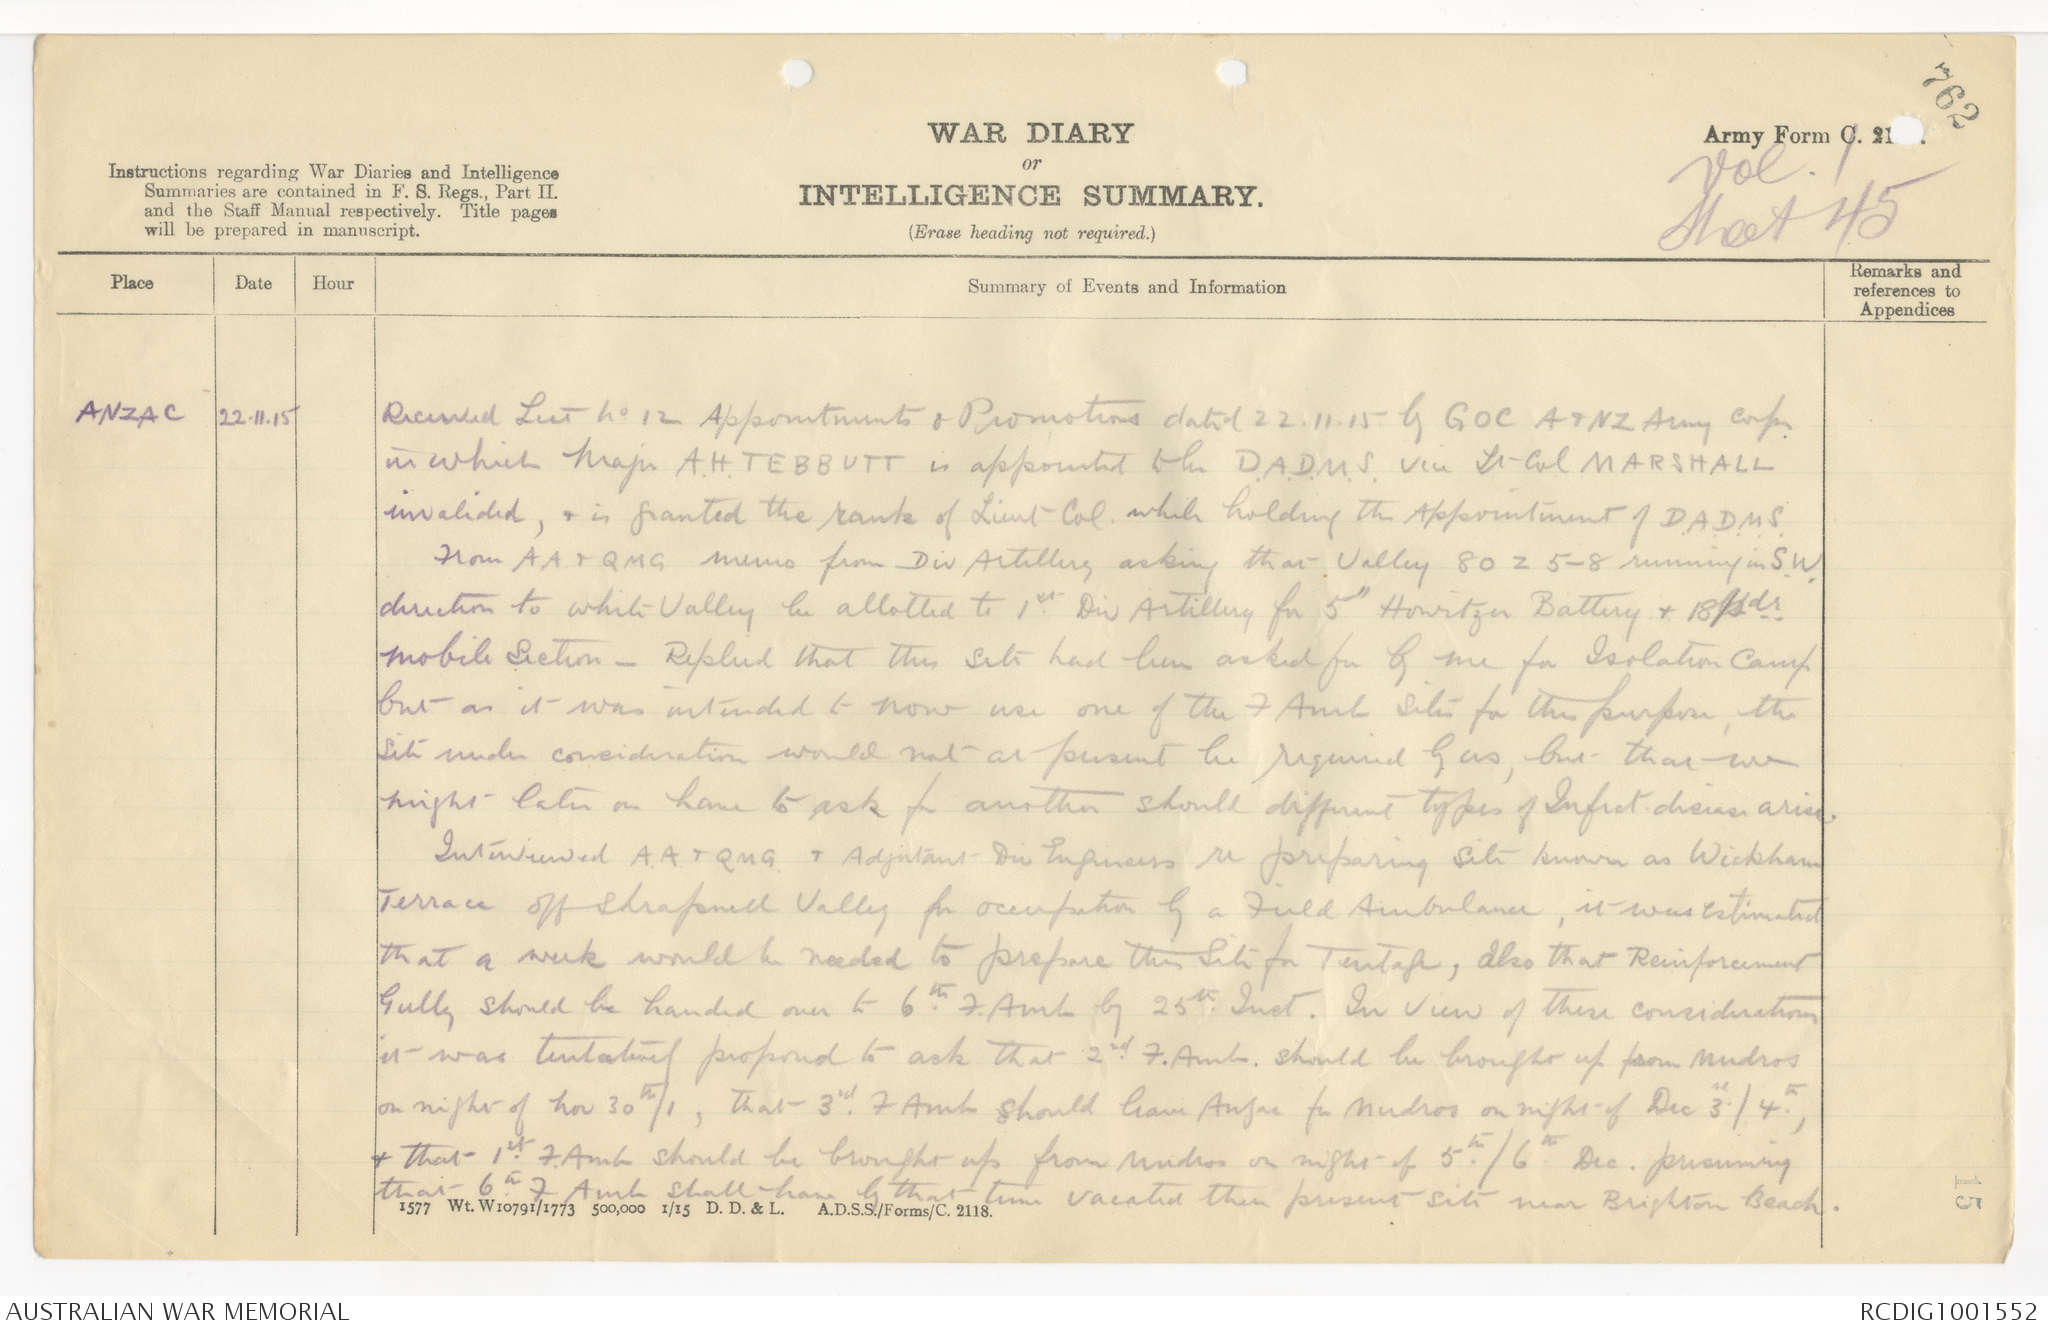 762
WAR DIARY
or
INTELLIGENCE SUMMARY.
(Erase heading not required.)
Army Form C. 21
Vol. 1
Sheet 45
Instructions regarding War Diaries and Intelligence
Summaries are contained in F. S. Regs., Part II.
and the Staff Manual respectively. Title pages
will be prepared in manuscript.
Place
Date
Hour
Summary of Events and Information
Remarks and
references to
Appendices
ANZAC
22.11.15
Received List No 12 Appointments & Promotions dated 22.11.15 by GOC A & NZ Army Corps
in which Major A.H. TEBBUTT is appointed to be D.A.D.M.S. vice Lt-Col MARSHALL
invalided, & is granted the rank of Lieut-Col. while holding the Appointment of D.A.D.M.S.
From AA & QMG memo from Div Artillery asking that Valley 80 Z 5-8 running in S.W.
direction to White Valley be allotted to 1st Div Artillery for 5" Howitzer Battery & 18 pdr
mobile Section - Replied that this site had been asked for by me for Isolation Camp
but as it was intended to now use one of the F Amb Sites for this purpose, the
site under consideration would not at present be required by us, but that we
might later on have to ask for another should different types of Infect. disease arise.
Interviewed A.A & QMG. & Adjutant Div Engineers re preparing Site known as Wickham
Terrace off Shrapnell Valley for occupation by a Field Ambulance, it was estimated
that a week would be needed to prepare this Site for Tentage, also that Reinforcement
Gully should be handed over to 6th F. Amb by 25th Inst. In view of these considerations
it was tentatively proposed to ask that 2nd F. Amb. should be brought up from Mudros
on night of Nov 30th/1, that 3rd F Amb should leave Anzac for Mudros on night of Dec 3rd/4th,
& that 1st F. Amb should be brought up from Mudros on night of 5th/6th Dec. presuming
that 6th F Amb shall have by that time vacated their present site near Brighton Beach.
1577 Wt. W10791/1773 500,000 1/15 D. D. & L. A.D.S.S./Forms/C. 2118.
15
AUSTRALIAN WAR MEMORIAL
RCDIG1001552